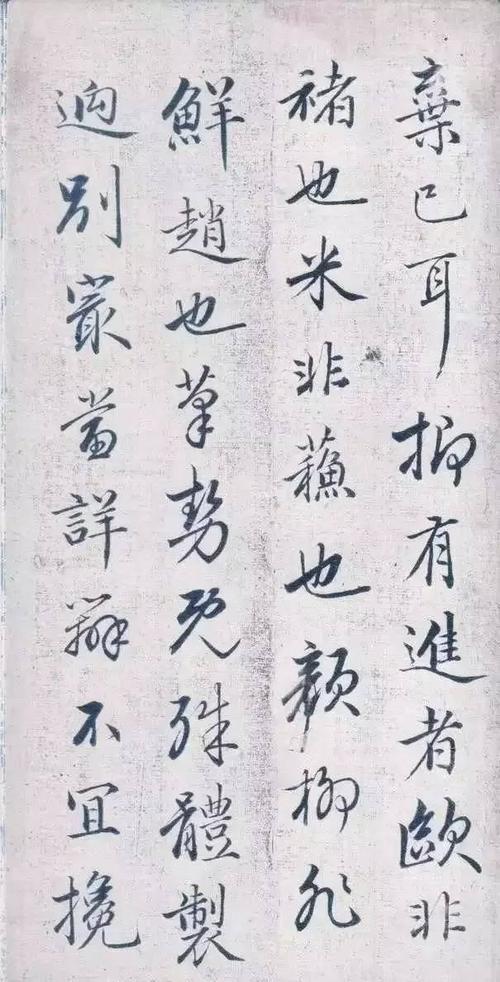 棄已耳抑有進者歐非
褚也米非蘓也顏柳非
鮮趙也茟勢既殊體製
逈別寂當詳辨不宜攙